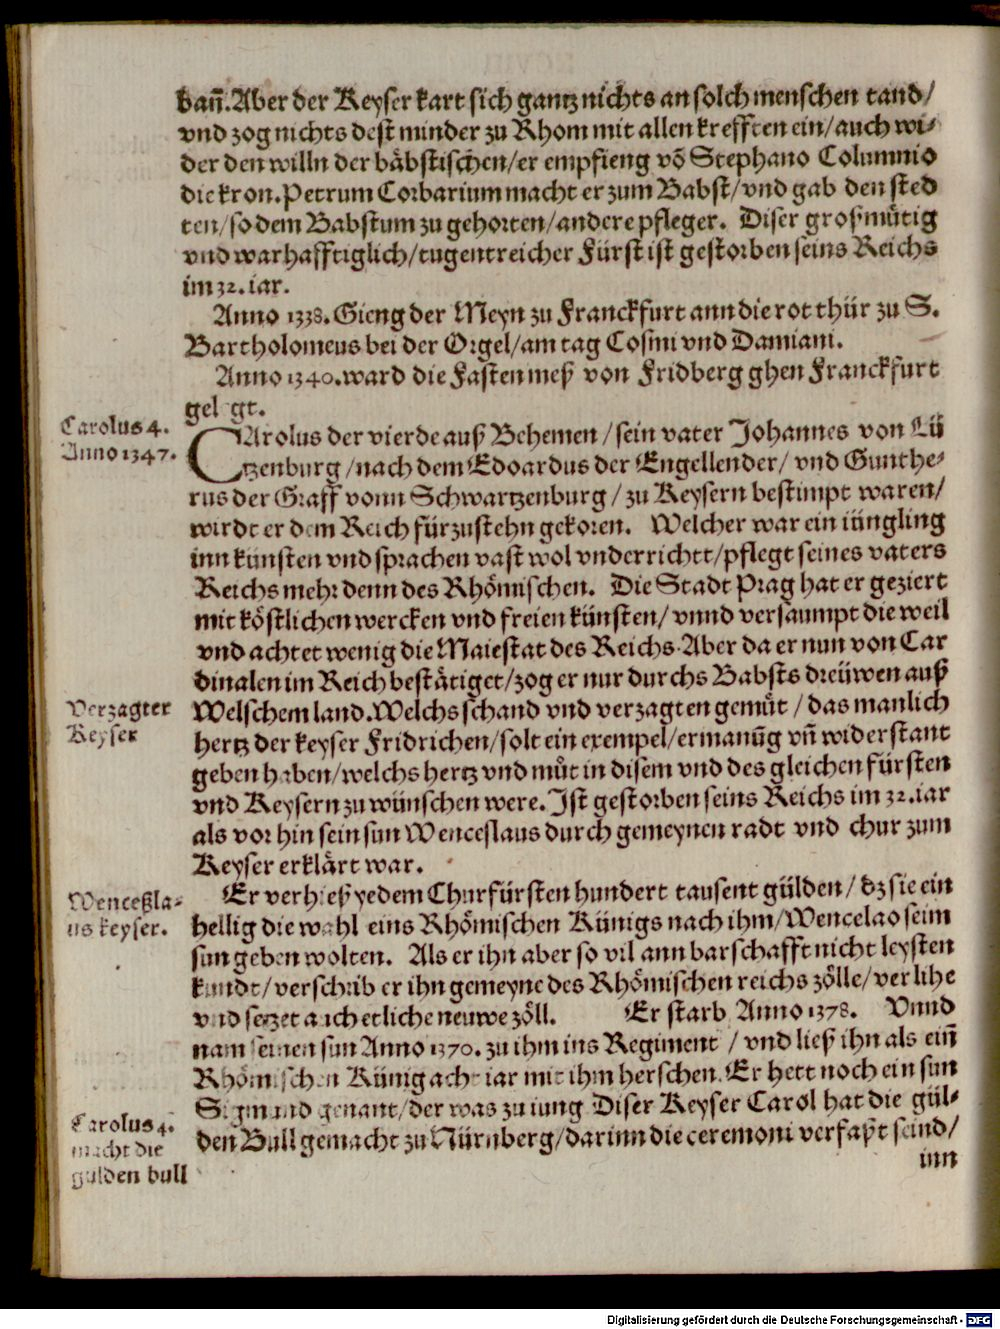 bañ. Aber der Keyser kart sich gantz nichts an solch menschen tand/
vnd zog nichts dest minder zu Rhom mit allen krefften ein/auch wi-
der den willn der bäbstischen/er empfieng võ Stephano Columnio
die kron. Petrum Corbarium macht er zum Babst/vnd gab den sted
ten/so dem Babstum zu gehorten/andere pfleger. Diser großmütig
vnd warhafftiglich/tugentreicher Fürst ist gestorben seins Reichs
im 32. iar.
Anno 1338. Gieng der Meyn zu Franckfurt ann die rot thür zu S.
Bartholomeus bei der Orgel/am tag Cosmi vnd Damiani.
Anno 1340. ward die Fastenmeß von Fridberg ghen Franckfurt
gelegt.
Carolus 4.
Anno 1347.
CArolus der vierde auß Behemen/sein vater Johannes von Lü
tzenburg/nach dem Edoardus der Engellender/vnd Gunthe-
rus der Graff vonn Schwartzenburg/zu Keysern bestimpt waren/
wirdt er dem Reich fürzustehn gekoren. Welcher war ein iüngling
inn künsten vnd sprachen vast wol vnderrichtt/pflegt seines vaters
Reichs mehr denn des Rhömischen. Die Stadt Prag hat er geziert
mit köstlichen wercken vnd freien künsten/vnnd versaumpt die weil
vnd achtet wenig die Maiestat des Reichs. Aber da er nun von Car
dinalen im Reich bestätiget/zog er nur durchs Babsts dreüwen auß
Verzagter
Keyser
Welschem land. Welchs schand vnd verzagten gemüt/das manlich
hertz der keyser Fridrichen/solt ein exempel/ermanũg vñ widerstant
geben haben/welchs hertz vnd můt in disem vnd des gleichen fürsten
vnd Keysern zu wünschen were. Ist gestorben seins Reichs im 32. iar
als vor hin sein sun Wenceslaus durch gemeynen radt vnd chur zum
Keyser erklärt war.
Wenceßla-
us keyser.
Er verhieß yedem Churfürsten hundert tausent gülden/dz sie ein
hellig die wahl eins Rhömischen Künigs nach ihm/Wencelao seim
sun geben wolten. Als er ihn aber so vil ann barschafft nicht leysten
kundt/verschrib er ihn gemeyne des Rhömischen reichs zölle/verlihe
vnd setzet auch etliche neuwe zöll. Er starb Anno 1378. Vnnd
nam seinen sun Anno 1370. zu ihm ins Regiment/vnd ließ ihn als eiñ
Rhömischen Künig acht iar mit ihm herschen. Er hett noch ein sun
Sigmund genant/der was zu iung Diser Keyser Carol hat die gül-
Carolus 4.
macht die
gulden bull
den Bull gemacht zu Nürnberg/darinn die ceremoni verfaßt seind/
inn
Digitalisierung gefördert durch die Deutsche Forschungsgemeinschaft - DFG